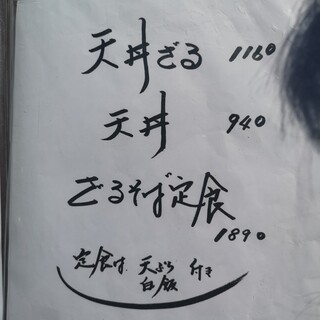 天丼ざる 1160
天丼 940
ざるそば定食
1890
定食は 天ぷら 付き
白飯